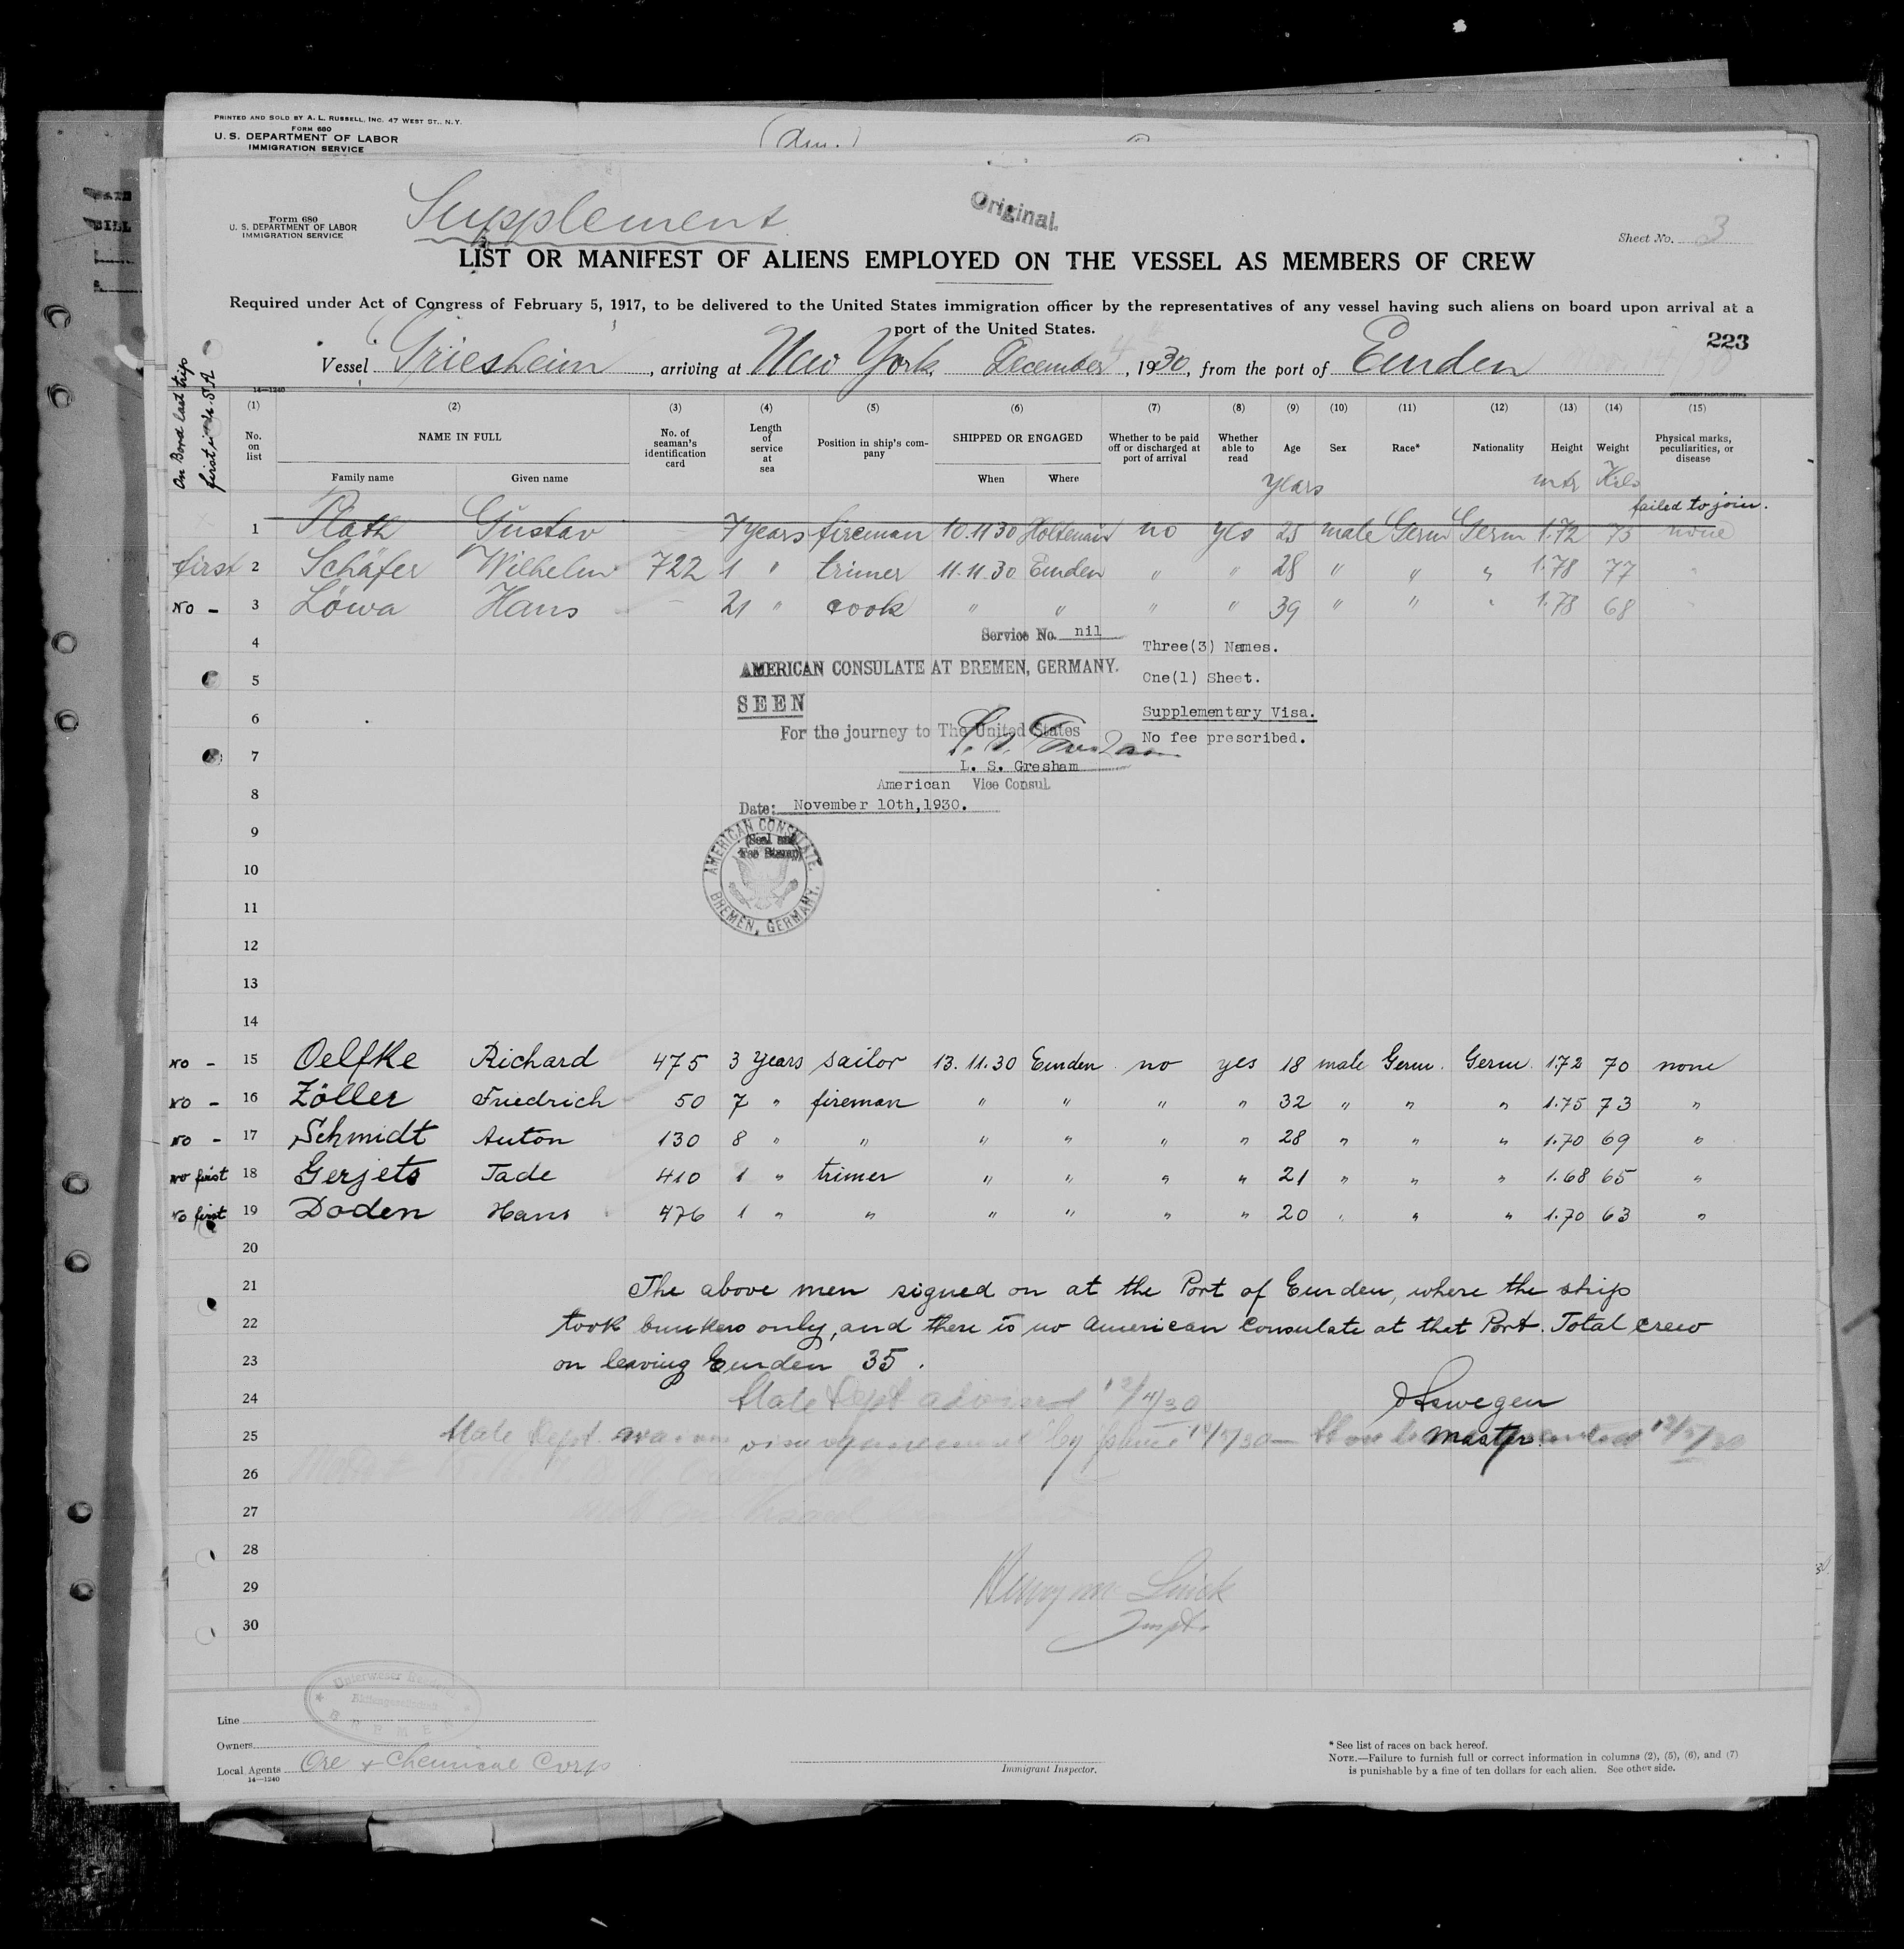 PRINTED AND SOLD BY A. L. RUSSELL, INC. 47 WEST ST., N. Y.
FORM 680
U. S. DEPARTMENT OF LABOR
IMMIGRATION SERVICE
Form 680
U. S. DEPARTMENT OF LABOR
IMMIGRATION SERVICE
Supplement
Original.
Sheet No. 3
LIST OR MANIFEST OF ALIENS EMPLOYED ON THE VESSEL AS MEMBERS OF CREW
Required under Act of Congress of February 5, 1917, to be delivered to the United States immigration officer by the representatives of any vessel having such aliens on board upon arrival at a
port of the United States.
223
Vessel Griesheim, arriving at New York, December 4, 1930, from the port of Emden
On Bord last trip
first in U. S. A
14—1240
(1) (2) (3) (4) (5) (6) (7) (8) (9) (10) (11) (12) (13) (14) (15)
No. on list
NAME IN FULL
Family name Given name
No. of seaman's identification card
Length of service at sea
Position in ship's company
SHIPPED OR ENGAGED
When Where
Whether to be paid off or discharged at port of arrival
Whether able to read
Age
Sex
Race*
Nationality
Height
Weight
Physical marks, peculiarities, or disease
years mtr Kilo
failed to join.
1 Plath Gustav 7 years fireman 10.11.30 Holtenau no yes 25 male Germ Germ 1.72 73 none
first 2 Schäfer Wilhelm 722 1 " trimer 11.11.30 Emden " " 28 " " " 1.78 77 "
No - 3 Löwa Hans 21 " cook " " " " 39 " " " 1.78 68
4
5
6
7
8
9
10
11
12
13
14
Service No. nil
AMERICAN CONSULATE AT BREMEN, GERMANY.
SEEN
For the journey to The United States
L. S. Gresham
American Vice Consul
Date: November 10th,1930.
Three(3) Names.
One(1) Sheet.
Supplementary Visa.
No fee prescribed.
AMERICAN CONSULATE.
(Seal and
Fee Stamp)
BREMEN, GERMANY.
No - 15 Oelfke Richard 475 3 years sailor 13.11.30 Emden no yes 18 male Germ. Germ. 1.72 70 none
No - 16 Zöller Friedrich 50 7 " fireman " " " " 32 " " " 1.75 73 "
No - 17 Schmidt Anton 130 8 " " " " " " 28 " " " 1.70 69 "
No first 18 Gerjets Tade 410 1 " trimer " " " " 21 " " " 1.68 65 "
No first 19 Doden Hans 476 1 " " " " " " 20 " " " 1.70 63 "
20
21 The above men signed on at the Port of Emden, where the ship
22 took bunkers only, and there is no American Consulate at that Port. Total crew
23 on leaving Emden 35.
24 State Dept advised 12/4/30
25 State Dept. by phone
Master.
26
27
28
29
30
Henry M.
Inspt.
Unterweser Reederei
Aktiengesellschaft
BREMEN
Line
Owners
Local Agents Ore & Chemical Corp
14—1240
Immigrant Inspector.
* See list of races on back hereof.
NOTE.—Failure to furnish full or correct information in columns (2), (5), (6), and (7)
is punishable by a fine of ten dollars for each alien. See other side.